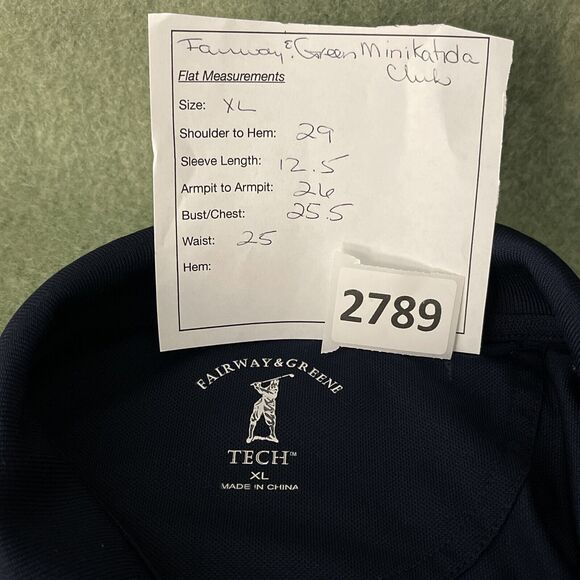 Fairway & Green Minikahda
Club
Flat Measurements
Size: XL
Shoulder to Hem: 29
Sleeve Length: 12.5
Armpit to Armpit: 26
Bust/Chest: 25.5
Waist: 25
Hem:
2789
FAIRWAY & GREENE
TECH™
XL
MADE IN CHINA